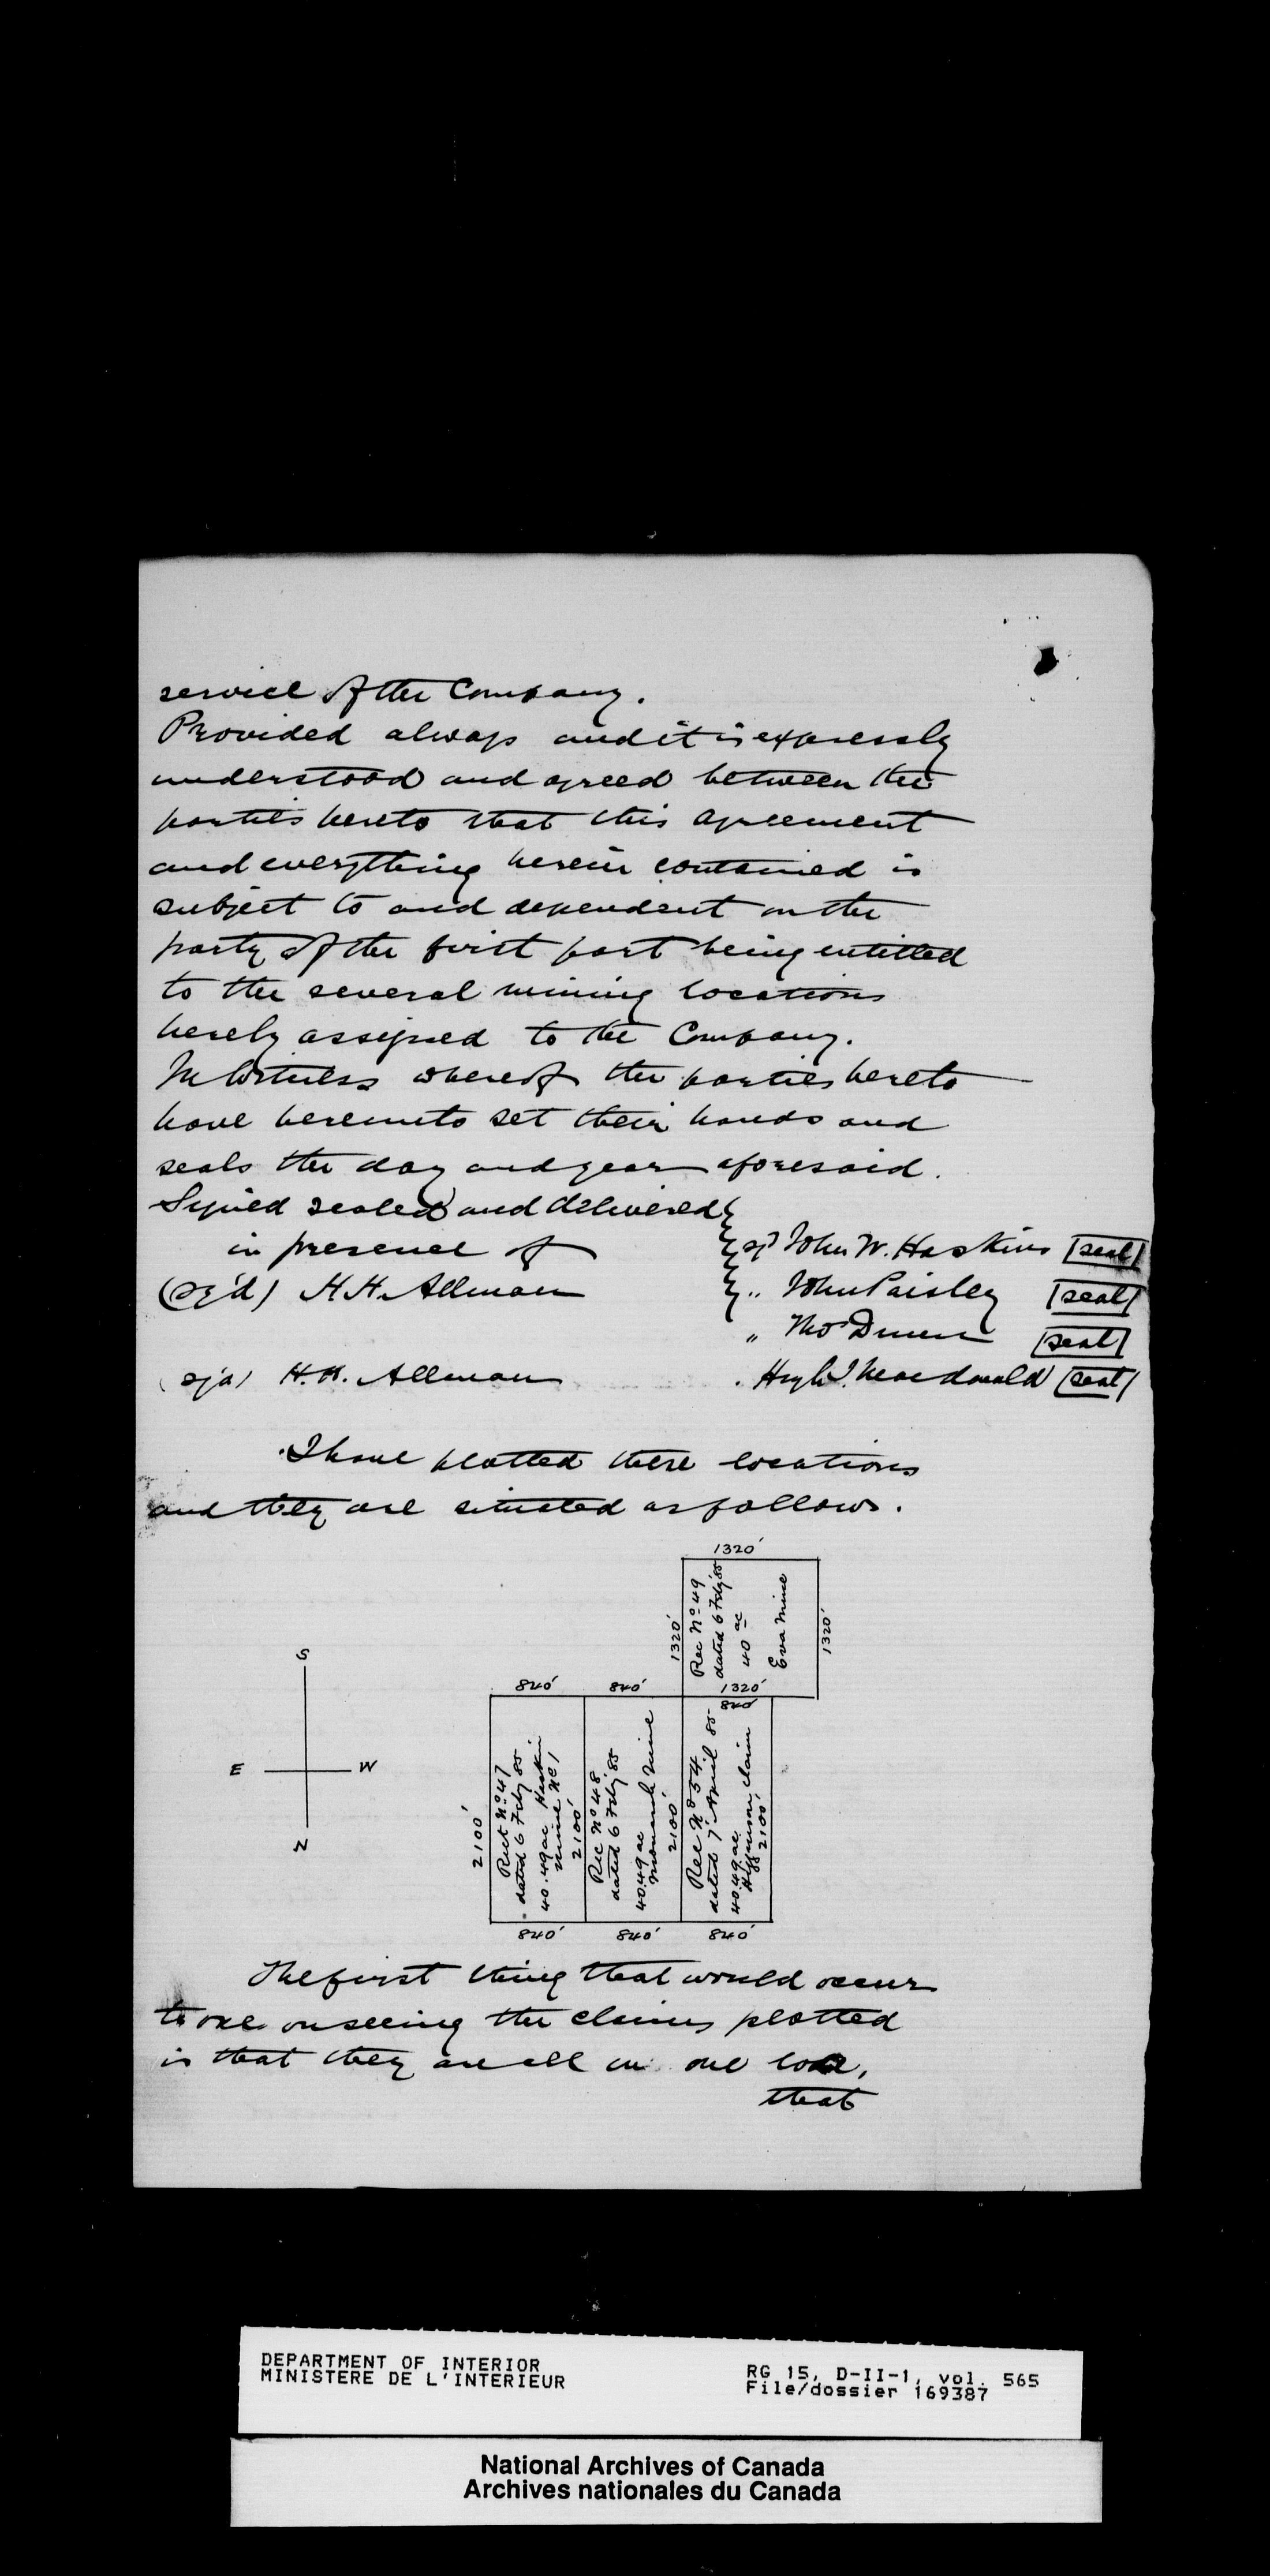 service of the Company.
Provided always and it is expressly
understood and agreed between the
parties hereto that this agreement
and everything herein contained is
subject to and dependent on the
party of the first part being entitled
to the several mining locations
hereby assigned to the Company.
In Witness whereof the parties hereto
have hereunto set their hands and
seals the day and year aforesaid.
Signed sealed and delivered
in presence of
sgd John W. Haskins seal
(sg'd) H. H. Allman
" John Paisley seal
" Tho seal
sg'd H. H. Allman
Hugh J. Macdonald seal
I have platted these locations
and they are situated as follows.
1320'
1320'
Rec No 49
dated 6 Feby 85
40 ac
Eva Mine
1320'
1320'
S
E W
N
840' 840' 840'
2100'
Rect No 47
dated 6 Feby 85
40.49 ac Haskin
Mine No 1
2100'
Rec No 48
dated 6 Feby 85
40.49 ac
Monarch Mine
2100'
Rec No 54
dated 7 April 85
40.49 ac
claim
2100'
840' 840' 840'
The first thing that would occur
to one on seeing the claims plotted
is that they are all on one
that
DEPARTMENT OF INTERIOR
MINISTERE DE L'INTERIEUR
RG 15, D-II-1, vol. 565
File/dossier 169387
National Archives of Canada
Archives nationales du Canada